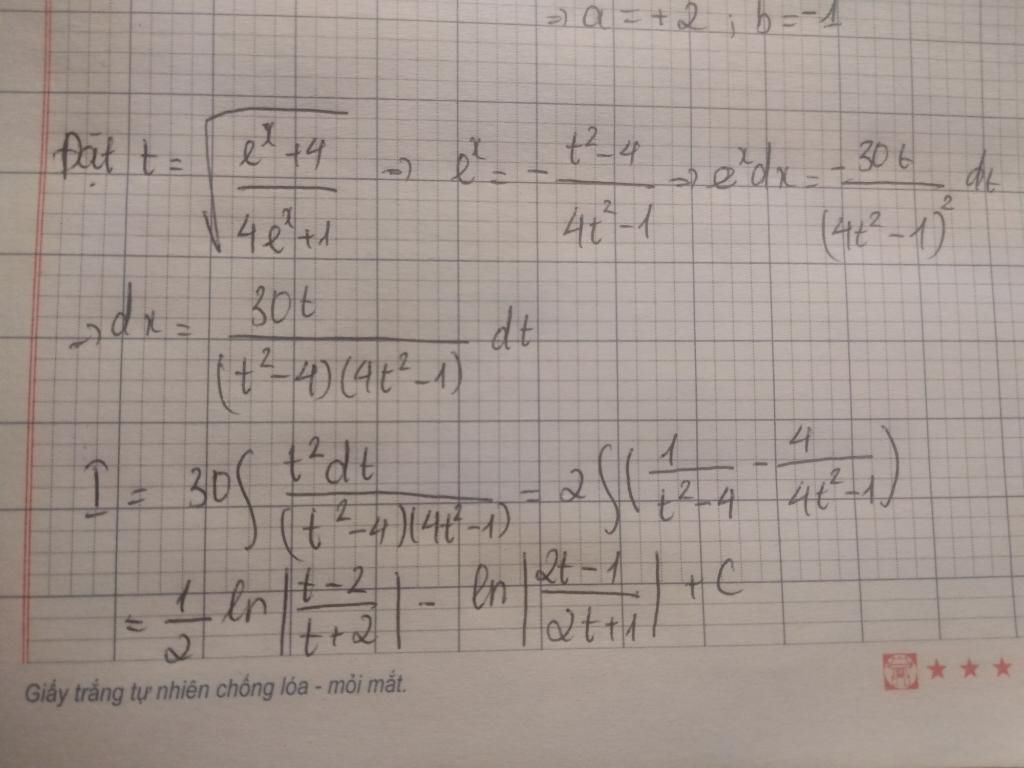 ⇒ a = +2 ; b = -1
Đặt t = √((e^x+4)/(4e^x+1)) ⇒ e^x = - (t²-4)/(4t²-1) ⇒ e^x dx = (-30t)/(4t²-1)² dt
⇒ dx = 30t/((t²-4)(4t²-1)) dt
I = 30∫ t²dt/((t²-4)(4t²-1)) = 2∫(1/(t²-4) - 4/(4t²-1))
= 1/2 ln|(t-2)/(t+2)| - ln|(2t-1)/(2t+1)| + C
Giấy trắng tự nhiên chống lóa - mỏi mắt.